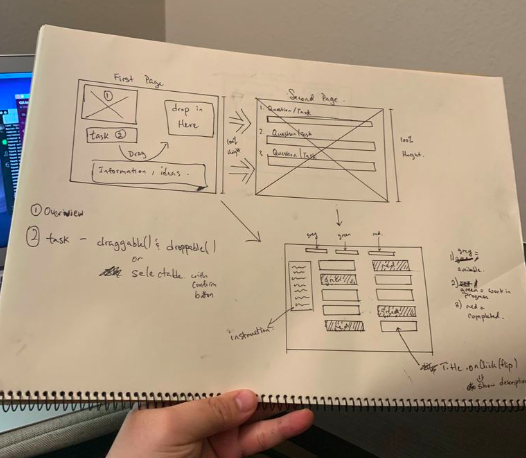 First Page
①
drop in
Here
task ②
Drag
Information, ideas.
100%
Height
Second Page.
1. Question/Task
2. Question/Task
3. Question/Task
100%
Height.
① Overview
② task - draggable() & droppable()
or
selectable with
confirm
button
grey
green
red
instruction
1) grey =
available.
2) green = work in
progress
3) red =
completed.
Title .onClick(flip)
show description